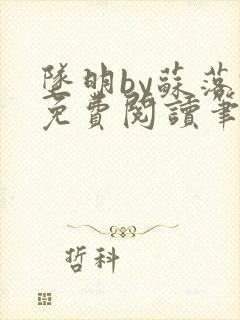 墜明by蘇落
免費閱讀筆
哲科